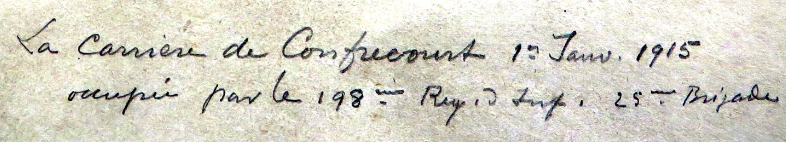 La Carrière de Confrecourt 1er Janv. 1915
occupée par le 198ème Reg. d'Inf. 25ème Brigade